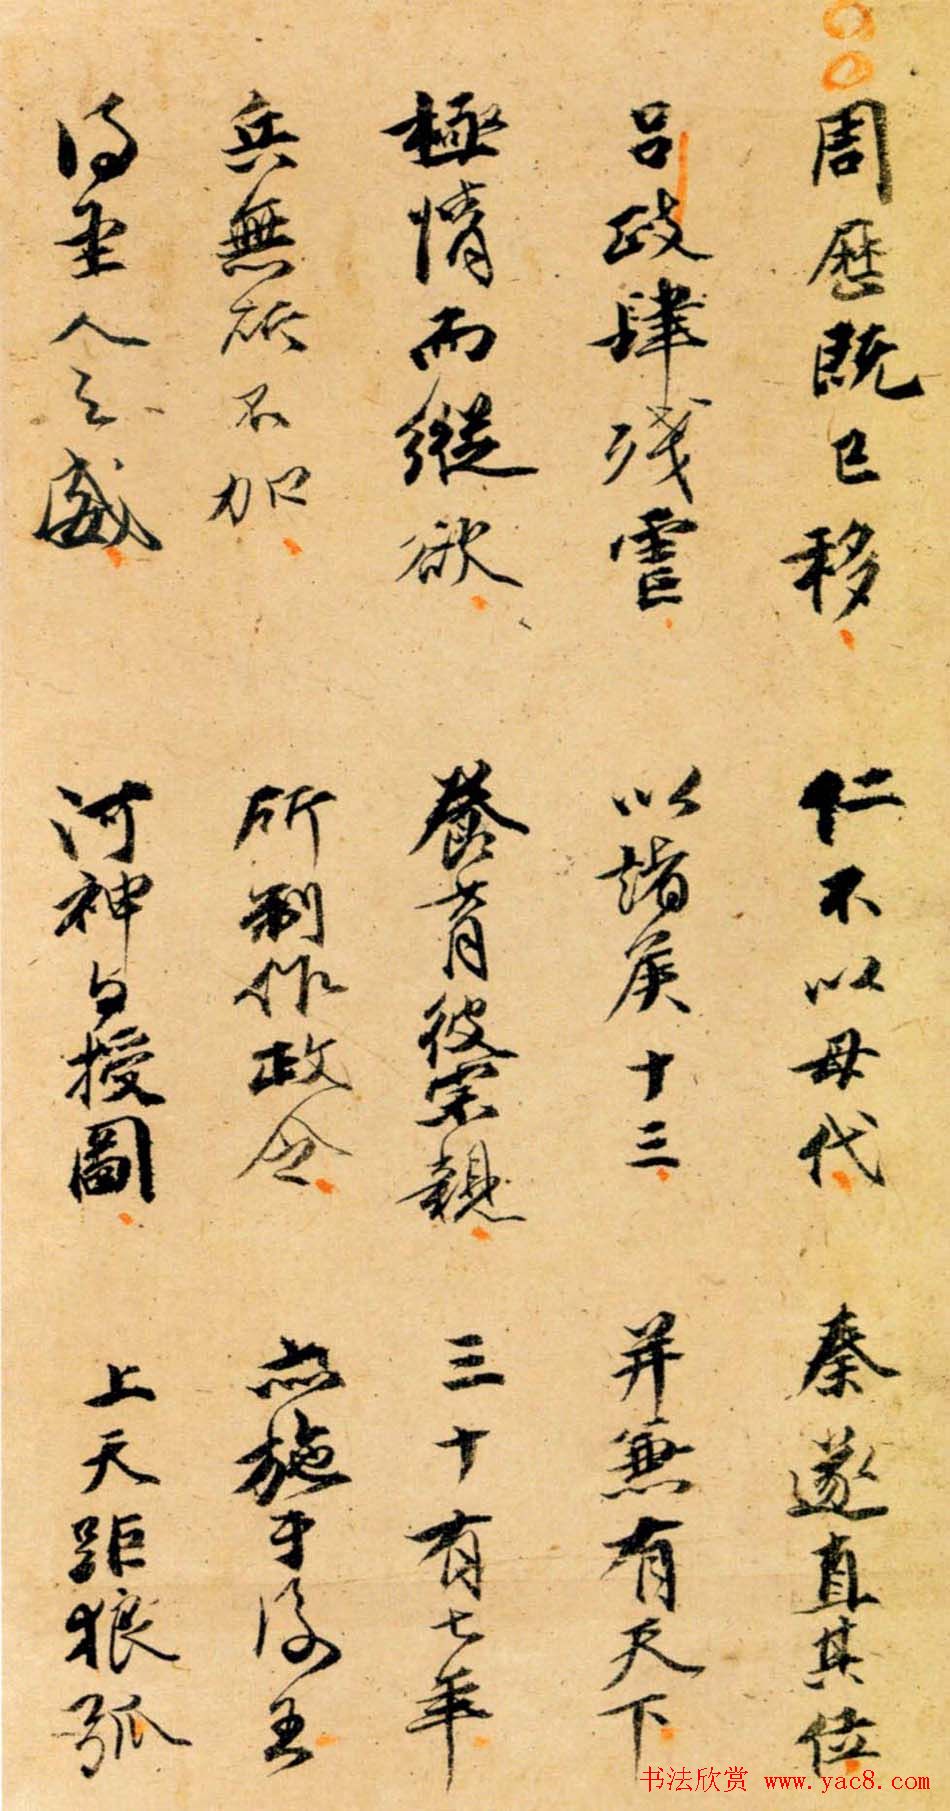 周歷既已移 仁不以母代 秦遂直其位
呂政肆殘虐 以諸侯十三 并兼有天下
極情而縱欲 養育彼宗親 三十有七年
兵無所不加 所制作政令 亦施于後王
得聖人之威 河神与授圖 上天距狼弧
书法欣赏 www.yac8.com